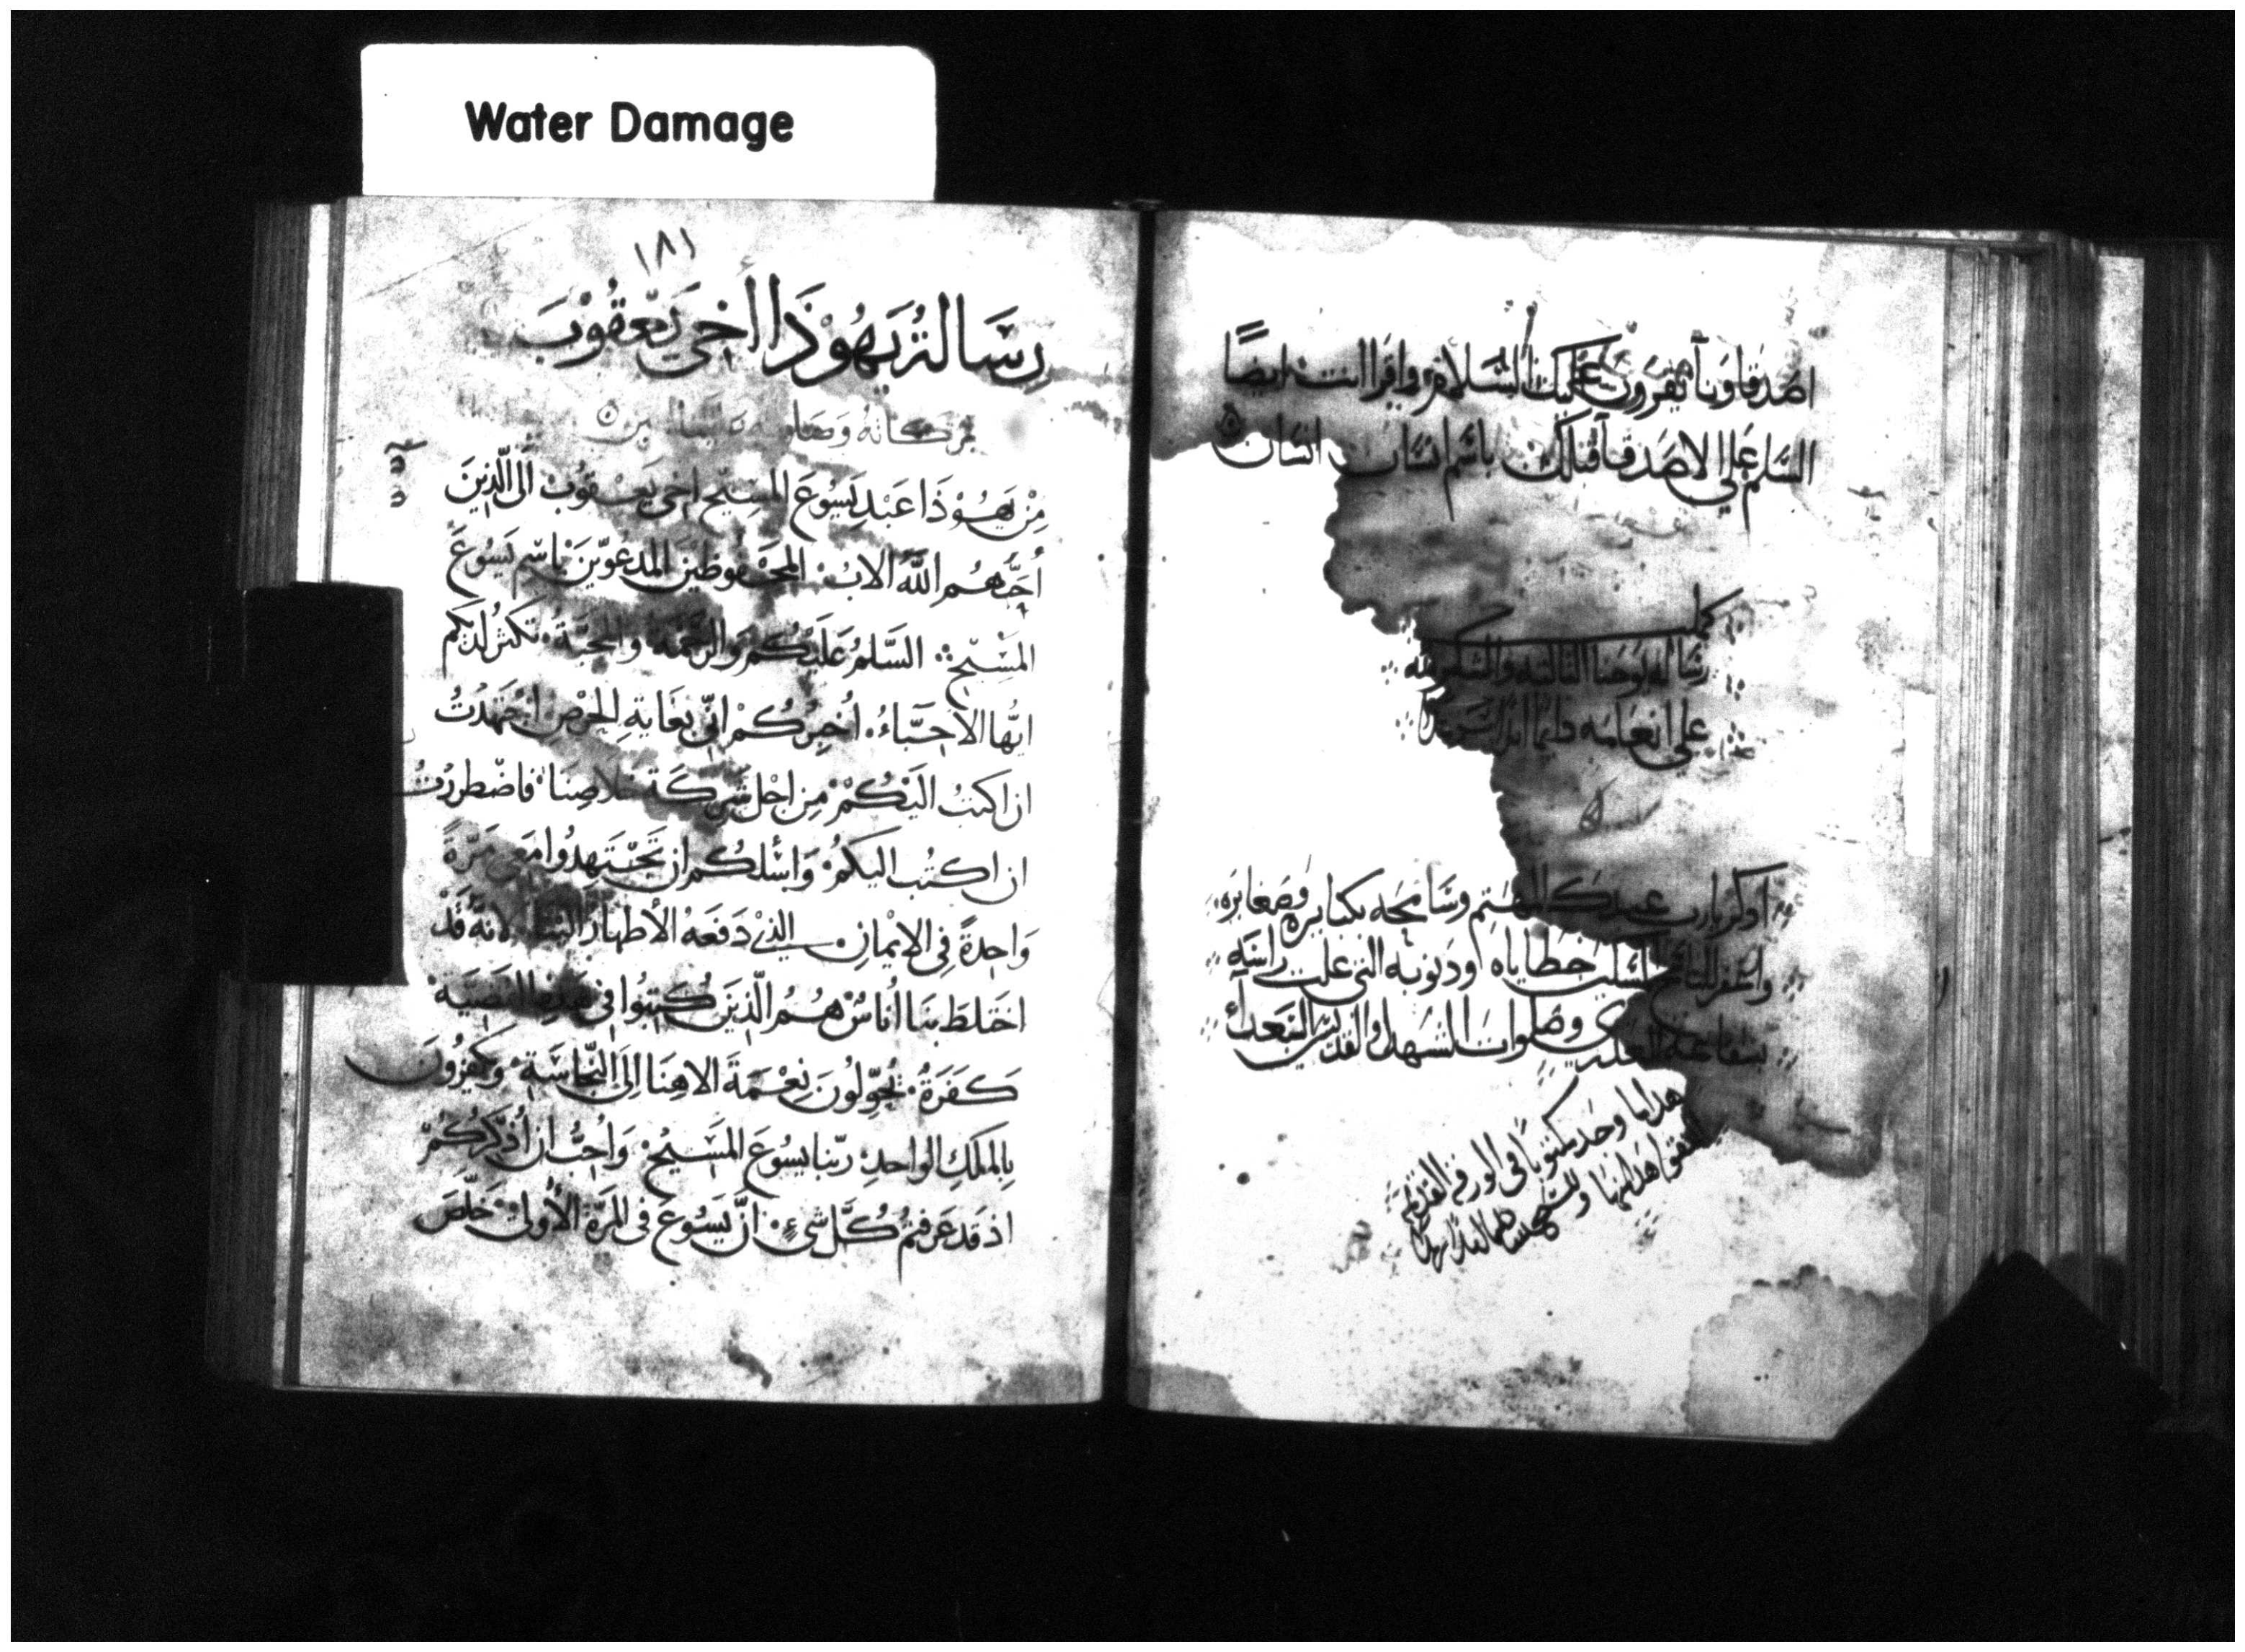 Water Damage
اصدقاونا يقرون عليك السلام واقرا انت ايضًا
السلم علي الاصدقا قبلك باسم انسان انسان
كملت
رسالة يوحنا الثالثه والشكر لله
علي انعامه دايما ابدا سرمدا
اذكر يارب عبدك المهتم وسامحه بكبايره وصغايره
خطاياه وذنوبه التي علت راسه
بشفاعة وصلوات الشهدا والقديسين السعدا
هذا ما وجد مكتوبا في الورقه القديمه
١٨١
رِسَالةُ يَهُوْذَا أَخِى يَعْقُوْبَ
بركاته
مِنْ يَهُوْذَا عَبْدِ يَسُوْعَ المسِيْحِ اخِى يَعْقُوْبَ الَى الّذِينَ
أحَبَّهُم اللَّهُ الابُ المحْفُوظِيْنَ المدعوّيْنَ باسْمِ يَسُوْعَ
المسْيْحِ السَّلمُ عَلَيْكُمْ وَالرَّحْمَةُ والمحبَّةُ تكثر لديكم
ايُّها الأحِبَّاءُ أخبِرُكُمْ انِّى بغَايةِ الحِرْصِ اجتَهَدْتُ
ان اكتبُ اليْكُمْ مِن اجْل شَرِكَةِ خلاصِنَا فاضْطررْتُ
ان اكتُب اليكمْ وَاسْألكُم ان تَجْتَهِدُوا معي مَرّةً
وَاحِدةً فِى الايْمانِ الذىْ دَفعَهُ الأطهارُ الينا لانَّهُ قَدْ
اختَلطَ بنَا اُنَاسٌ هُمُ الّذِينَ كُتِبُوا فى هَذِهِ القضِيّة
كَفَرَةٌ يُحَوِّلُونَ نِعْمَةَ الاهِنَا إلَى النَّجَاسَةِ وَيكْفُرُونَ
بِالملَكِ الواحِدِ ربّنا يسُوعَ المسِيْحِ وَاُحِبُّ ان اُذَكِّرَكُمْ
اذ قَد عَرفتُم كُلّ شىْءٍ انّ يَسُوْعَ فى المرّة الأولىْ خَلّصَ